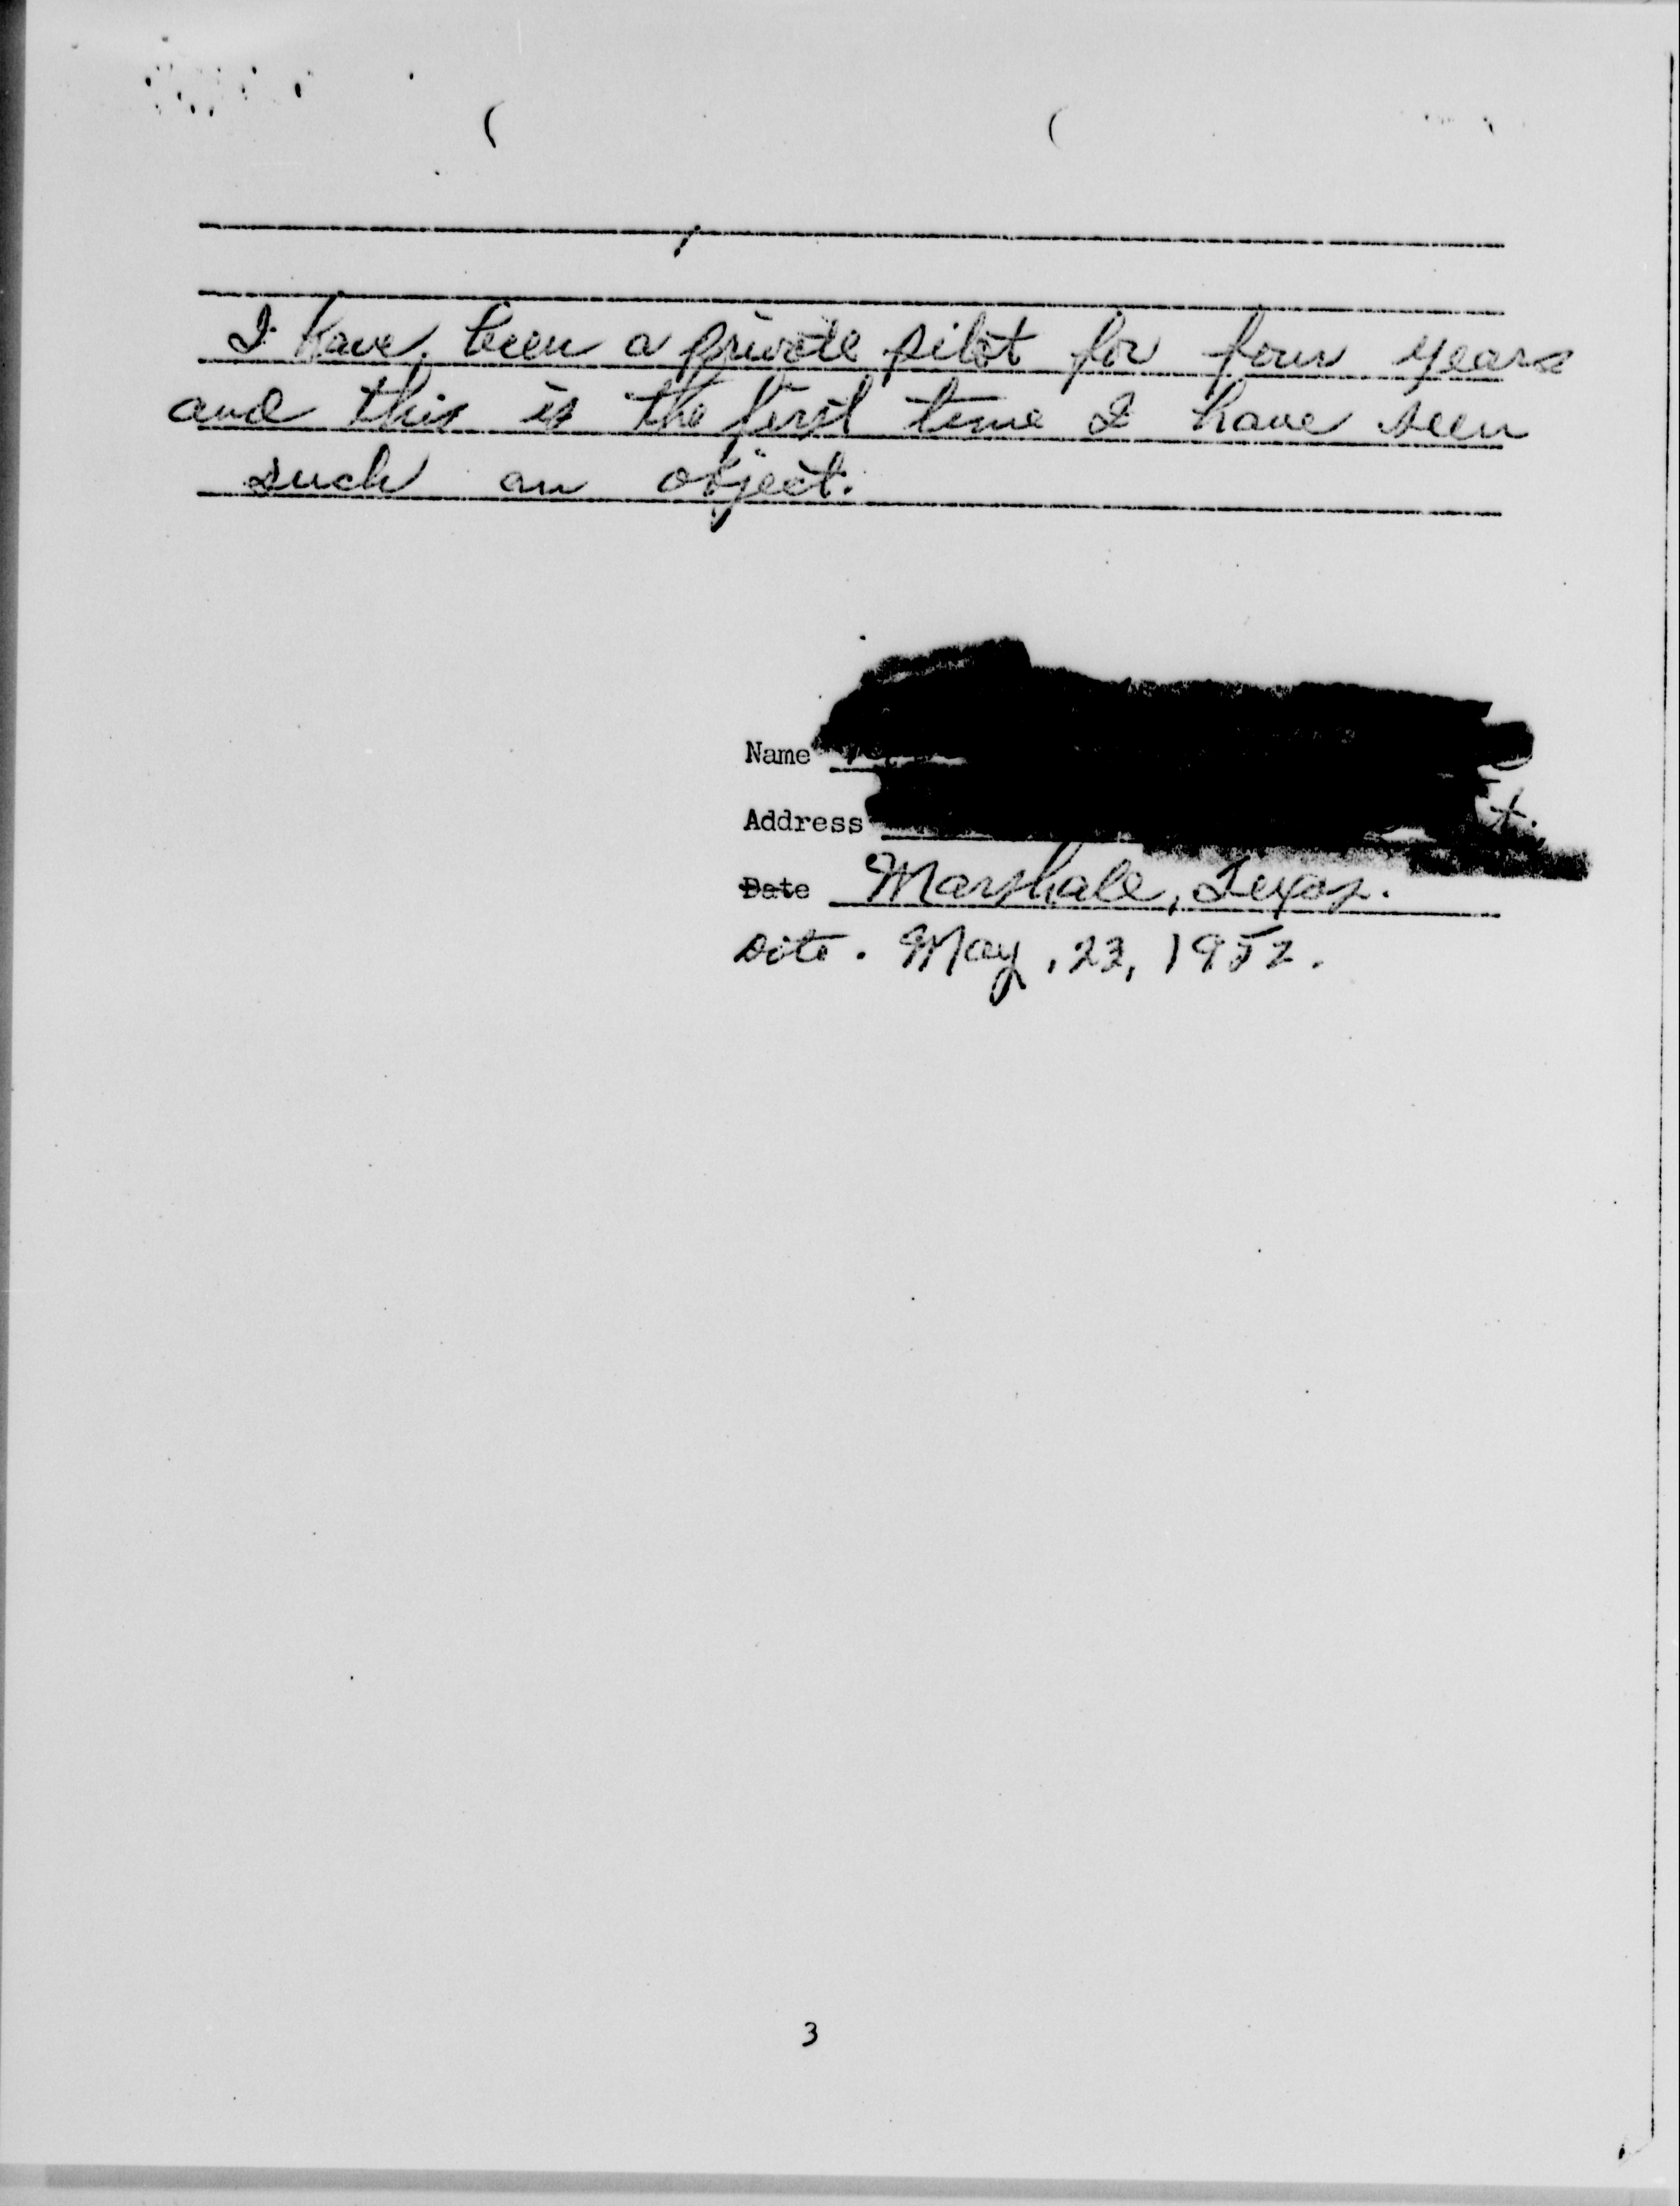 I have been a private pilot for four years
and this is the first time I have seen
such an object.
Name
Address
Date Marshall, Texas.
Date. May, 23, 1952.
3